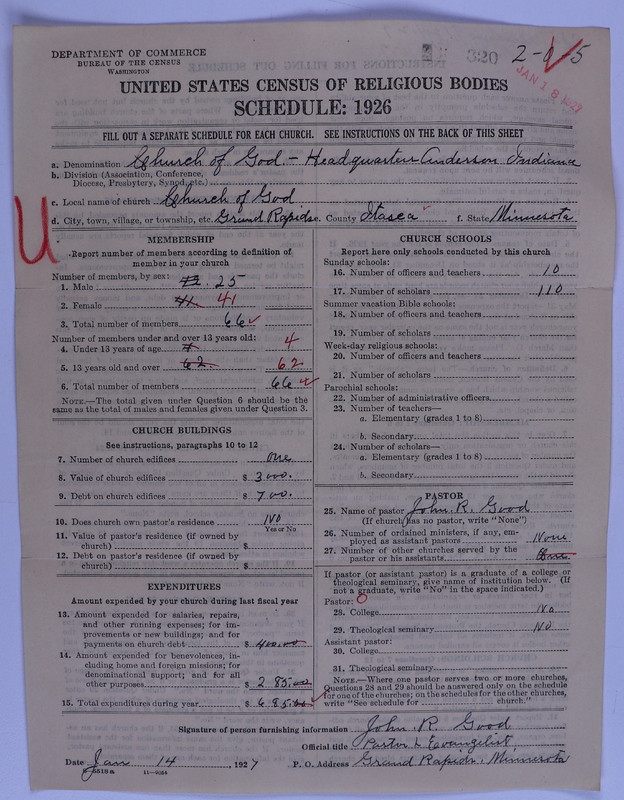 DEPARTMENT OF COMMERCE
BUREAU OF THE CENSUS
WASHINGTON
320
2-0-5
JAN 18 1927
UNITED STATES CENSUS OF RELIGIOUS BODIES
SCHEDULE: 1926
FILL OUT A SEPARATE SCHEDULE FOR EACH CHURCH. SEE INSTRUCTIONS ON THE BACK OF THIS SHEET
a. Denomination Church of God - Headquarters Anderson Indiana
b. Division (Association, Conference, Diocese, Presbytery, Synod, etc.)
c. Local name of church Church of God
d. City, town, village, or township, etc. Grand Rapids e. County Itasca f. State Minnesota
U
MEMBERSHIP
Report number of members according to definition of
member in your church
Number of members, by sex:
1. Male 25
2. Female 41
3. Total number of members 66
Number of members under and over 13 years old:
4. Under 13 years of age 4
5. 13 years old and over 62. 62
6. Total number of members 66
NOTE.—The total given under Question 6 should be
same as the total of males and females given under Question 3.
CHURCH BUILDINGS
See instructions, paragraphs 10 to 12
7. Number of church edifices one
8. Value of church edifices $ 3000.
9. Debt on church edifices $ 700.
10. Does church own pastor's residence No
Yes or No
11. Value of pastor's residence (if owned by
church) $
12. Debt on pastor's residence (if owned by
church) $
EXPENDITURES
Amount expended by your church during last fiscal year
13. Amount expended for salaries, repairs,
and other running expenses; for im-
provements or new buildings; and for
payments on church debt $ 400.00
14. Amount expended for benevolences, in-
cluding home and foreign missions; for
denominational support; and for all
other purposes $ 285.00
15. Total expenditures during year $ 685.00
CHURCH SCHOOLS
Report here only schools conducted by this church
Sunday schools:
16. Number of officers and teachers 10
17. Number of scholars 110
Summer vacation Bible schools:
18. Number of officers and teachers
19. Number of scholars
Week-day religious schools:
20. Number of officers and teachers
21. Number of scholars
Parochial schools:
22. Number of administrative officers
23. Number of teachers—
a. Elementary (grades 1 to 8)
b. Secondary
24. Number of scholars—
a. Elementary (grades 1 to 8)
b. Secondary
PASTOR
25. Name of pastor John R. Good
(If church has no pastor, write "None")
26. Number of ordained ministers, if any, em-
ployed as assistant pastors None
27. Number of other churches served by the
pastor or his assistants
If pastor (or assistant pastor) is a graduate of a college or
theological seminary, give name of institution below. (If
not a graduate, write "No" in the space indicated.)
Pastor: 0
28. College No
29. Theological seminary No
Assistant pastor:
30. College
31. Theological seminary
NOTE.—Where one pastor serves two or more churches,
Questions 28 and 29 should be answered only on the schedule
for one of the churches; on the schedules for the other churches,
write "See schedule for church."
Signature of person furnishing information John R. Good
Official title Pastor & Evangelist
Date Jan 14, 1927 P. O. Address Grand Rapids, Minnesota
11—9054